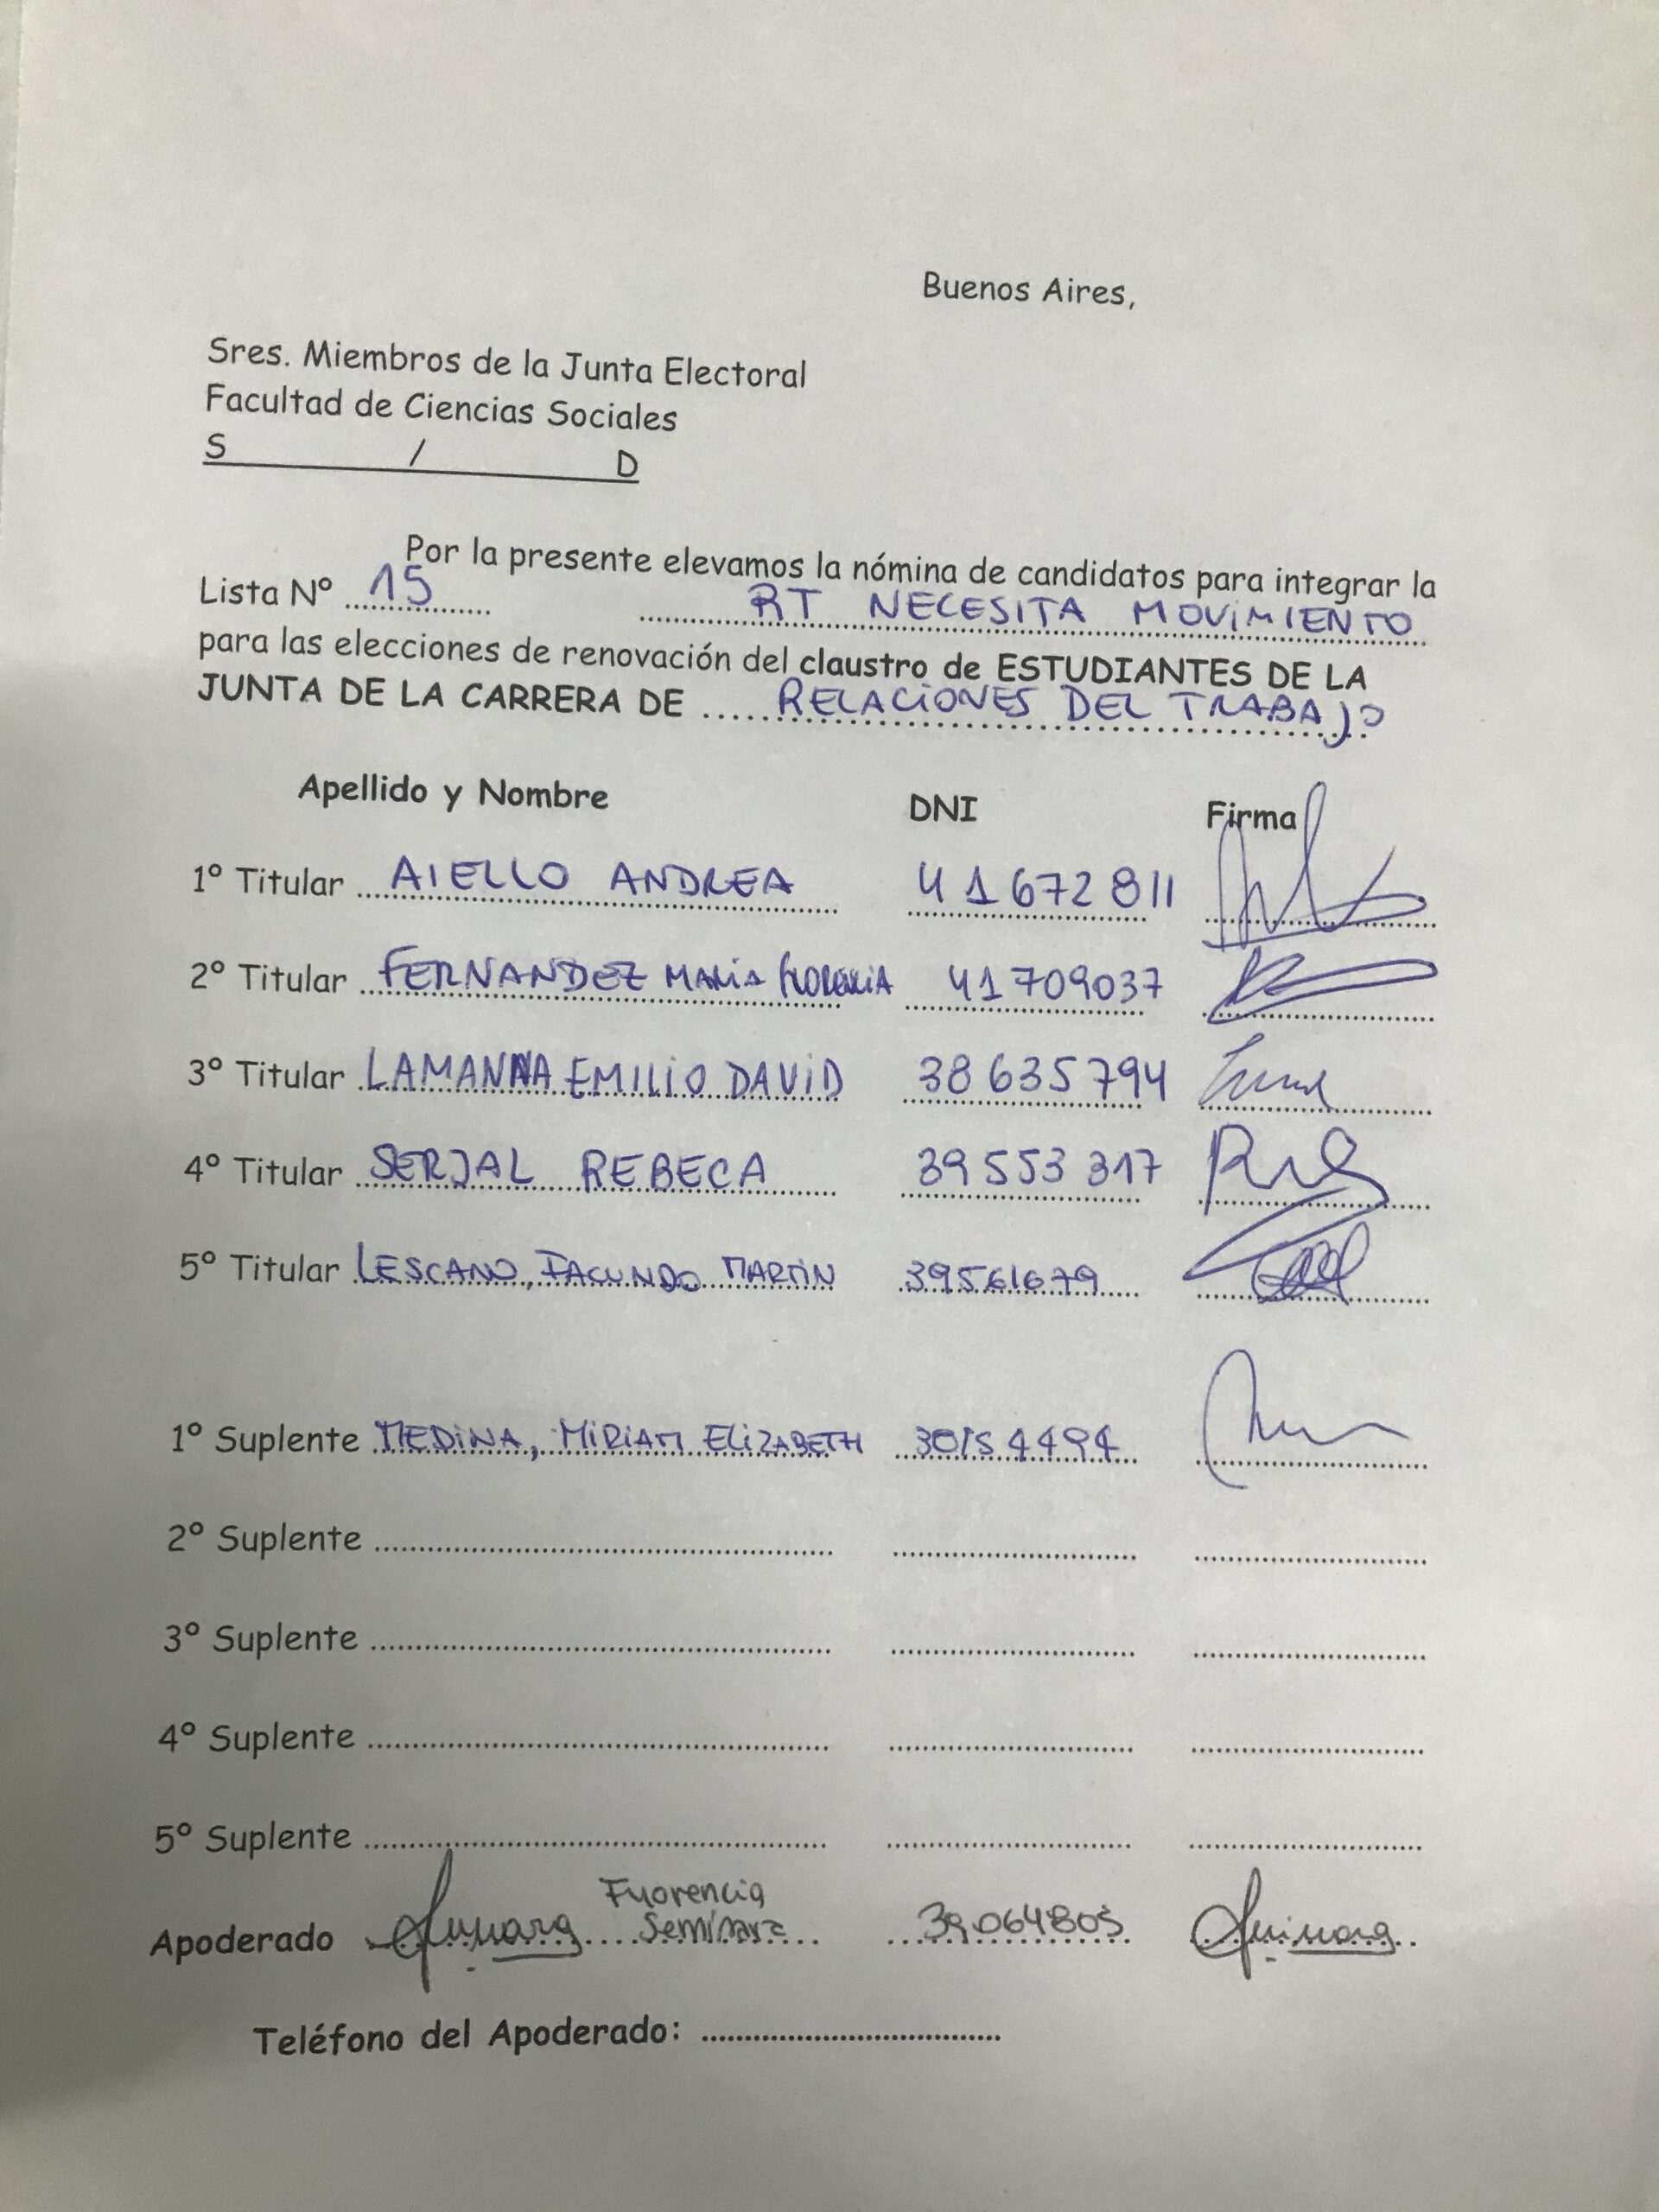 Buenos Aires,
Sres. Miembros de la Junta Electoral
Facultad de Ciencias Sociales
S / D
Por la presente elevamos la nómina de candidatos para integrar la
Lista Nº 15 RT NECESITA MOVIMIENTO
para las elecciones de renovación del claustro de ESTUDIANTES DE LA
JUNTA DE LA CARRERA DE RELACIONES DEL TRABAJO
Apellido y Nombre DNI Firma
1º Titular AIELLO ANDREA 41672811
2º Titular FERNANDEZ MARIA FLORENCIA 41709037
3º Titular LAMANNA EMILIO DAVID 38635794
4º Titular SERJAL REBECA 39553317
5º Titular LESCANO, FACUNDO MARTIN 39561679
1º Suplente MEDINA, MIRIAM ELIZABETH 30154494
2º Suplente
3º Suplente
4º Suplente
5º Suplente
Apoderado Florencia Seminara 39064805
Teléfono del Apoderado: